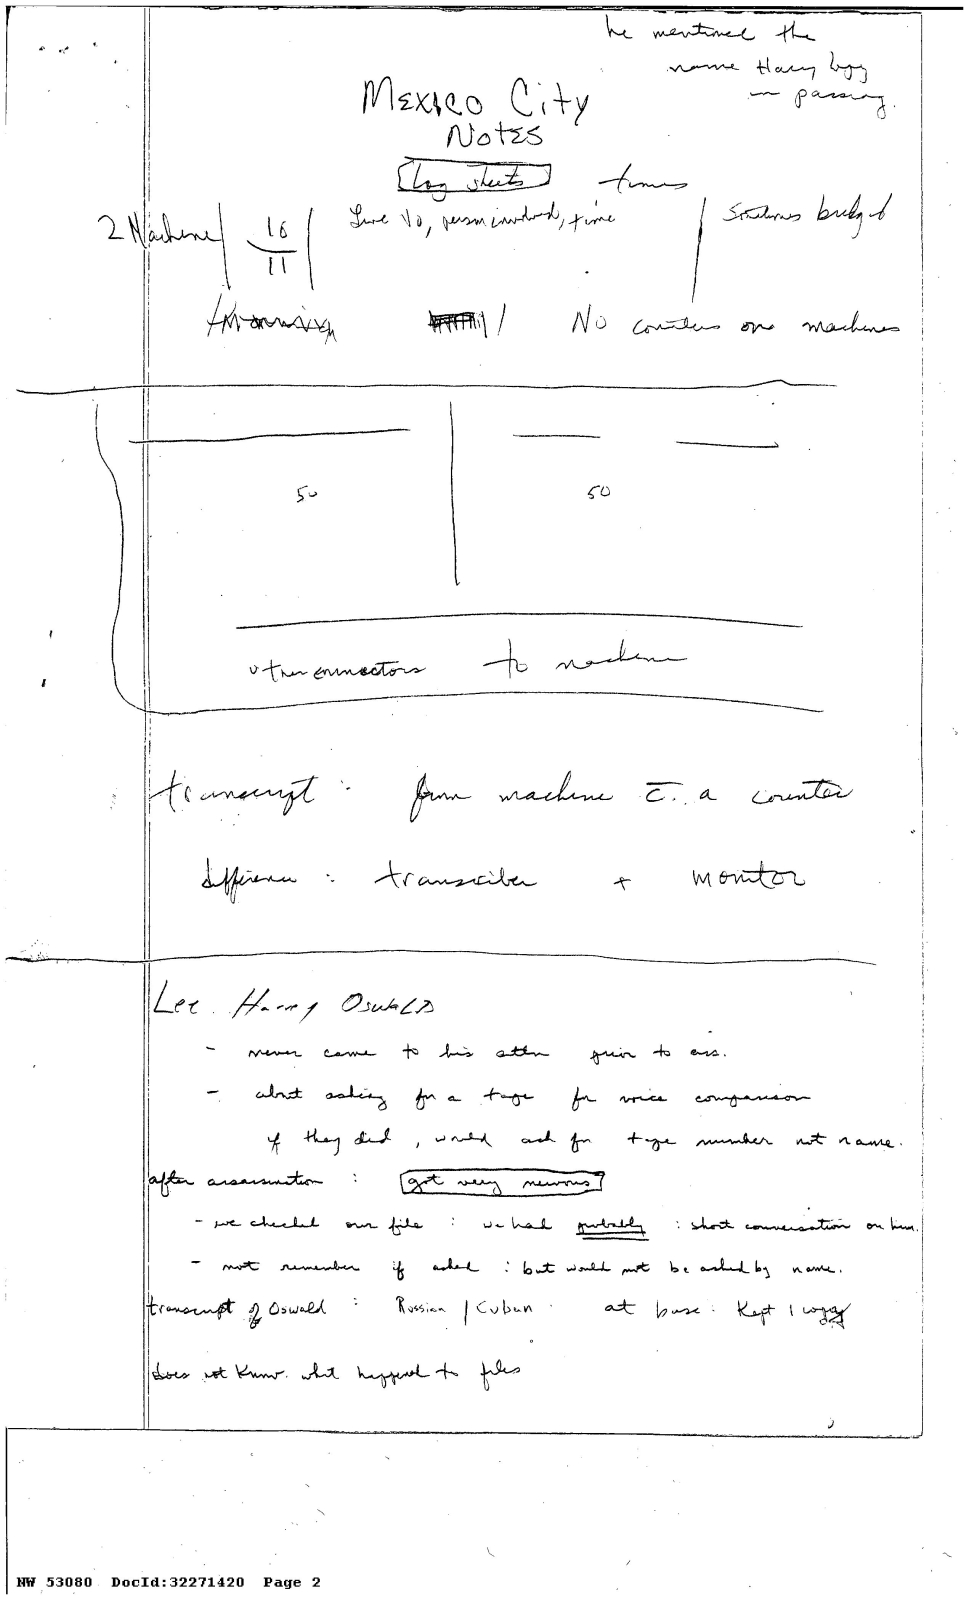 he mentioned the
name Harry
in passing.
Mexico City
Notes
Log sheets times
2 Machine 16 Line No, person involved, time Sometimes
11
No counters on machines
50 50
connectors to machine
transcript : from machine c̄. a counter
difference : transcriber + monitor
Lee Harvey Oswald
- never came to his attn prior to ass.
- about asking for a tape for voice comparison
if they did, would ask for tape number not name.
after assassination : got very nervous
- we checked our file : we had probably : short conversation on him.
- not remember if asked : but would not be asked by name.
transcript of Oswald : Russian / Cuban at base : Kept 1 copy
does not know what happened to files
NW 53080 DocId:32271420 Page 2